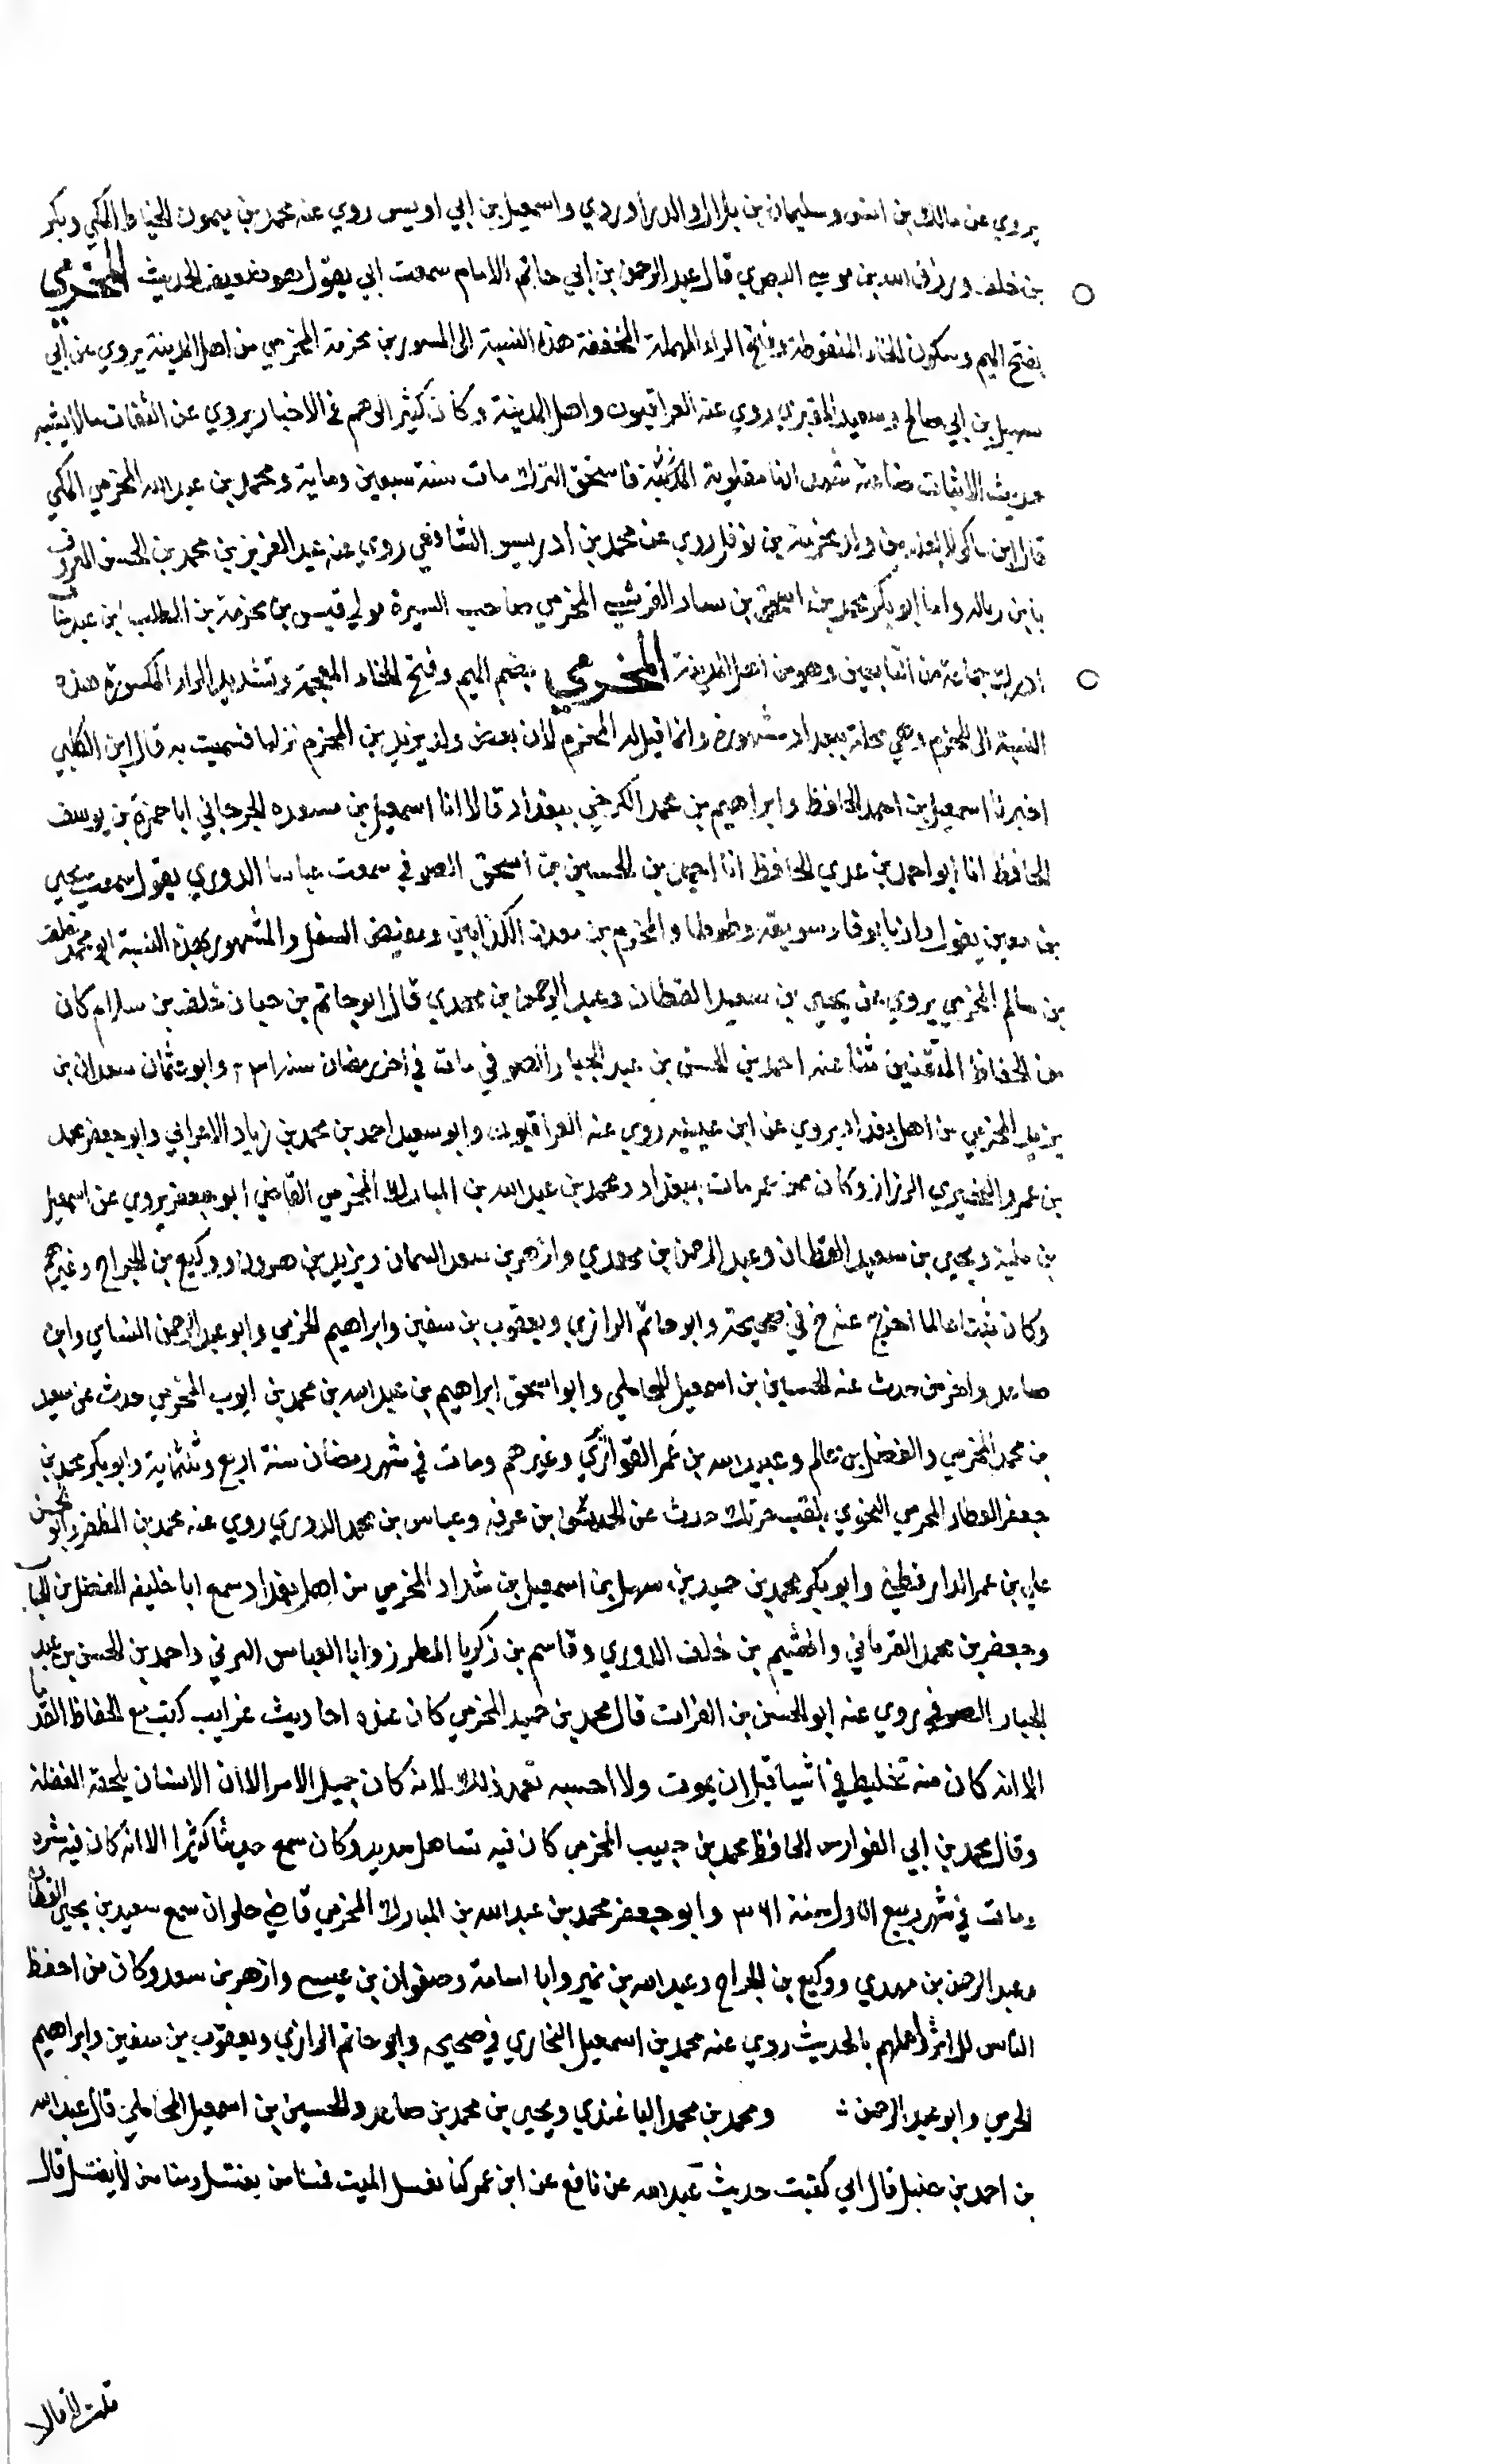 يروي عن مالك بن انس وسليمان بن بلال والدراوردي واسمعيل بن ابي اويس روي عنه محمد بن ميمون الخياط المكي وبكر
بن خلف ورزق الله بن موسي البصري قال عبد الرحمن بن ابي حاتم الامام سمعت ابي يقول هو ضعيف الحديث المخرمي
بفتح الميم وسكون الخاء المنقوطة وفتح الراء المهملة المخففة هذه النسبة الى المسور بن مخرمة المخرمي من اهل المدينة يروي عن ابي
سهيل بن ابي صالح وسعيد المقبري روي عنه العراقيون واهل المدينة وكان كثير الوهم في الاخبار يروي عن الثقات مالايشبه
حديث الاثبات شهد انها مقلوبة فاستحق الترك مات سنة سبعين وماية ومحمد بن عبد الله المخرمي المكي
قال ابن ماكولا من ولد مخرمة بن نوفل روي عن محمد بن ادريس الشافعي روي عنه عبد العزيز بن محمد بن الحسن المعروف
بابن زباله واما ابو بكر محمد بن اسحق بن يسار القرشي المخرمي صاحب السيرة مولي قيس بن مخرمة بن المطلب بن عبد مناف
ادرك جماعة من التابعين وهو من اهل المدينة المخرمي بضم الميم وفتح الخاء المعجمة وتشديد الراء المكسورة هذه
النسبة الى المخرم وهي محلة ببغداد مشهورة وانما قيل له المخرم لان بعض ولد يزيد بن المخرم نزلها فسميت به قال ابن الكلبي
اخبرنا اسمعيل بن احمد الحافظ وابراهيم بن محمد الكرخي ببغداد قالا انا اسمعيل بن مسعده الجرجاني ابا حمزة بن يوسف
الحافظ انا ابو احمد بن عدي الحافظ انا احمد بن الحسين بن اسحق الصوفي سمعت عباسا الدوري يقول سمعت يحيي
بن معين يقول والمخرم بن معدن الكذابين السفل والمشهور بهذه النسبة ابو محمد خلف
بن سالم المخرمي يروي عن يحيي بن سعيد القطان وعبد الرحمن بن مهدي قال ابو حاتم بن حبان خلف بن سلام كان
من الحفاظ المتقنين ثنا عنه احمد بن الحسن بن عبد الجبار الصوفي مات في اخر رمضان سنه وابو عثمان سعدان بن
يزيد المخرمي من اهل بغداد يروي عن ابن عيينه روي عنه العراقيون وابو سعيد احمد بن محمد بن زياد الاعرابي وابو جعفر محمد
بن عمرو البختري الرزاز وكان ممن عمر مات ببغداد ومحمد بن عبد الله بن المبارك المخرمي القاضي ابو جعفر يروي عن اسمعيل
بن علية ويحيي بن سعيد القطان وعبد الرحمن بن مهدي وازهر بن سعد السمان ويزيد بن هرون ووكيع بن الجراح وغيرهم
وكان ثبتا عالما اخرج عنه خ في صحيحه وابو حاتم الرازي ويعقوب بن سفين وابراهيم الحربي وابو عبد الرحمن النساي وابن
صاعد واخر من حدث عنه الحسين بن اسمعيل المحاملي وابو اسحق ابراهيم بن عبد الله بن محمد بن ايوب المخرمي حدث عن سعيد
بن محمد المخرمي والفضل بن غالم وعبيد الله بن عمر القواريري وغيرهم ومات في شهر رمضان سنة اربع وثلثماية وابو بكر محمد بن
جعفر العطار المخرمي النحوي يلقب خرتك حدث عن الحسن بن عرفه وعباس بن محمد الدوري روي عنه محمد بن المظفر وابو الحسن
علي بن عمر الدارقطني وابو بكر محمد بن حميد بن سهيل بن اسمعيل بن شداد المخرمي من اهل بغداد سمع ابا خليفه الفضل بن الحباب
وجعفر بن محمد الفريابي والهيثم بن خلف الدوري وقاسم بن زكريا المطرز وابا العباس البرتي واحمد بن الحسن بن عبد
الجبار الصوفي روي عنه ابو الحسن بن الفرات قال محمد بن حميد المخرمي كان عنده احاديث غرايب كتب مع الحفاظ القدما
الا انه كان منه تخليط في اشيا قبل ان يموت ولا احسبه تعمد ذلك لانه كان جميل الامر الا ان الانسان يلحقه الغفلة
وقال محمد بن ابي الفوارس الحافظ محمد بن حبيب المخرمي كان فيه تساهل شديد وكان سمع حديثا كثيرا الا انه كان فيه شره
ومات في شهر ربيع الاول سنة ٣٦١ وابو جعفر محمد بن عبد الله بن المبارك المخرمي قاضي حلوان سمع سعيد بن يحيي القطان
وعبد الرحمن بن مهدي ووكيع بن الجراح وعبد الله بن نمير وابا اسامة وصفوان بن عيسي وازهر بن سعد وكان من احفظ
الناس للاثر واعلمهم بالحديث روي عنه محمد بن اسمعيل البخاري في صحيحه وابو حاتم الرازي ويعقوب بن سفين وابراهيم
الحربي وابو عبد الرحمن ومحمد بن محمد الباغندي ويحيي بن محمد بن صاعد والحسين بن اسمعيل المحاملي قال عبد الله
بن احمد بن حنبل قال ابي كتبت حديث عبيد الله عن نافع عن ابن عمر كنا نغسل الميت فمنا من يغتسل ومنا من لا يغتسل قال
قلت لا قال لا